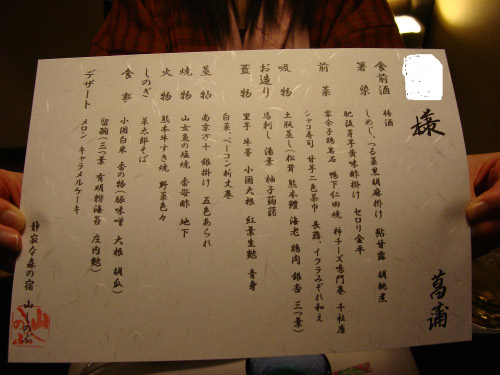 様
菖蒲
食前酒 梅酒
箸染 しめじ、つる菜黒胡麻掛け 鮎甘露 胡桃煮
肥後芋茎黄味酢掛け セロリ金平
前菜 零余子鶏黄石 鴨下仁田焼 柿チーズ鳴門巻 千社唐
シャコ寿司 甘芋二色茶巾 長芋、イクラみぞれ和え
吸物 土瓶蒸し(松茸 熊本鱧 海老 鶏肉 銀杏 三つ葉)
お造り 馬刺し 湯葉 柚子蒟蒻
蓋物 里芋 牛蒡 小國大根 紅葉生麩 青身
白菜、ベーコン新丈巻
蒸物 南京万十 銀掛け 五色あられ
焼物 山女魚の塩焼 香母酢 地下
火物 熊本牛すき焼 野菜色々
しのぎ 草太郎そば
食事 小國白米 香の物(豚味噌 大根 胡瓜)
留碗(三つ葉 有明物海苔 庄内麩)
デザート メロン キャラメルケーキ
静寂な森の宿 山しのぶ